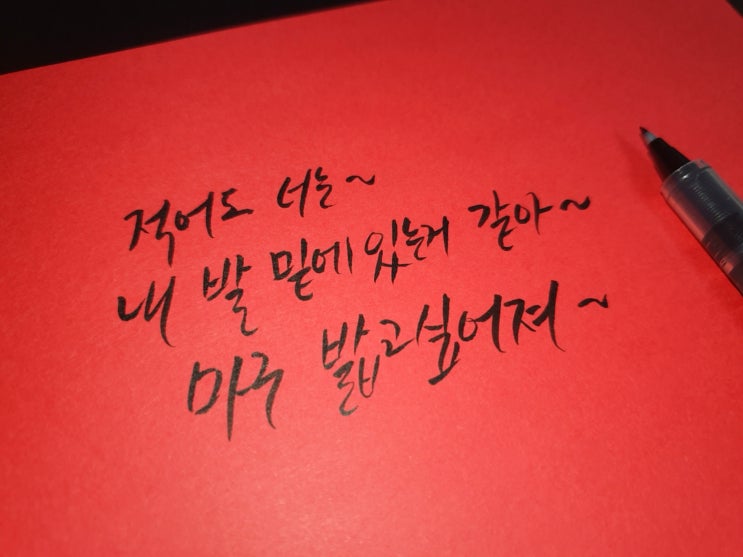 적어도 너는~
내 발 밑에 있는거 같아~
마구 밟고싶어져~